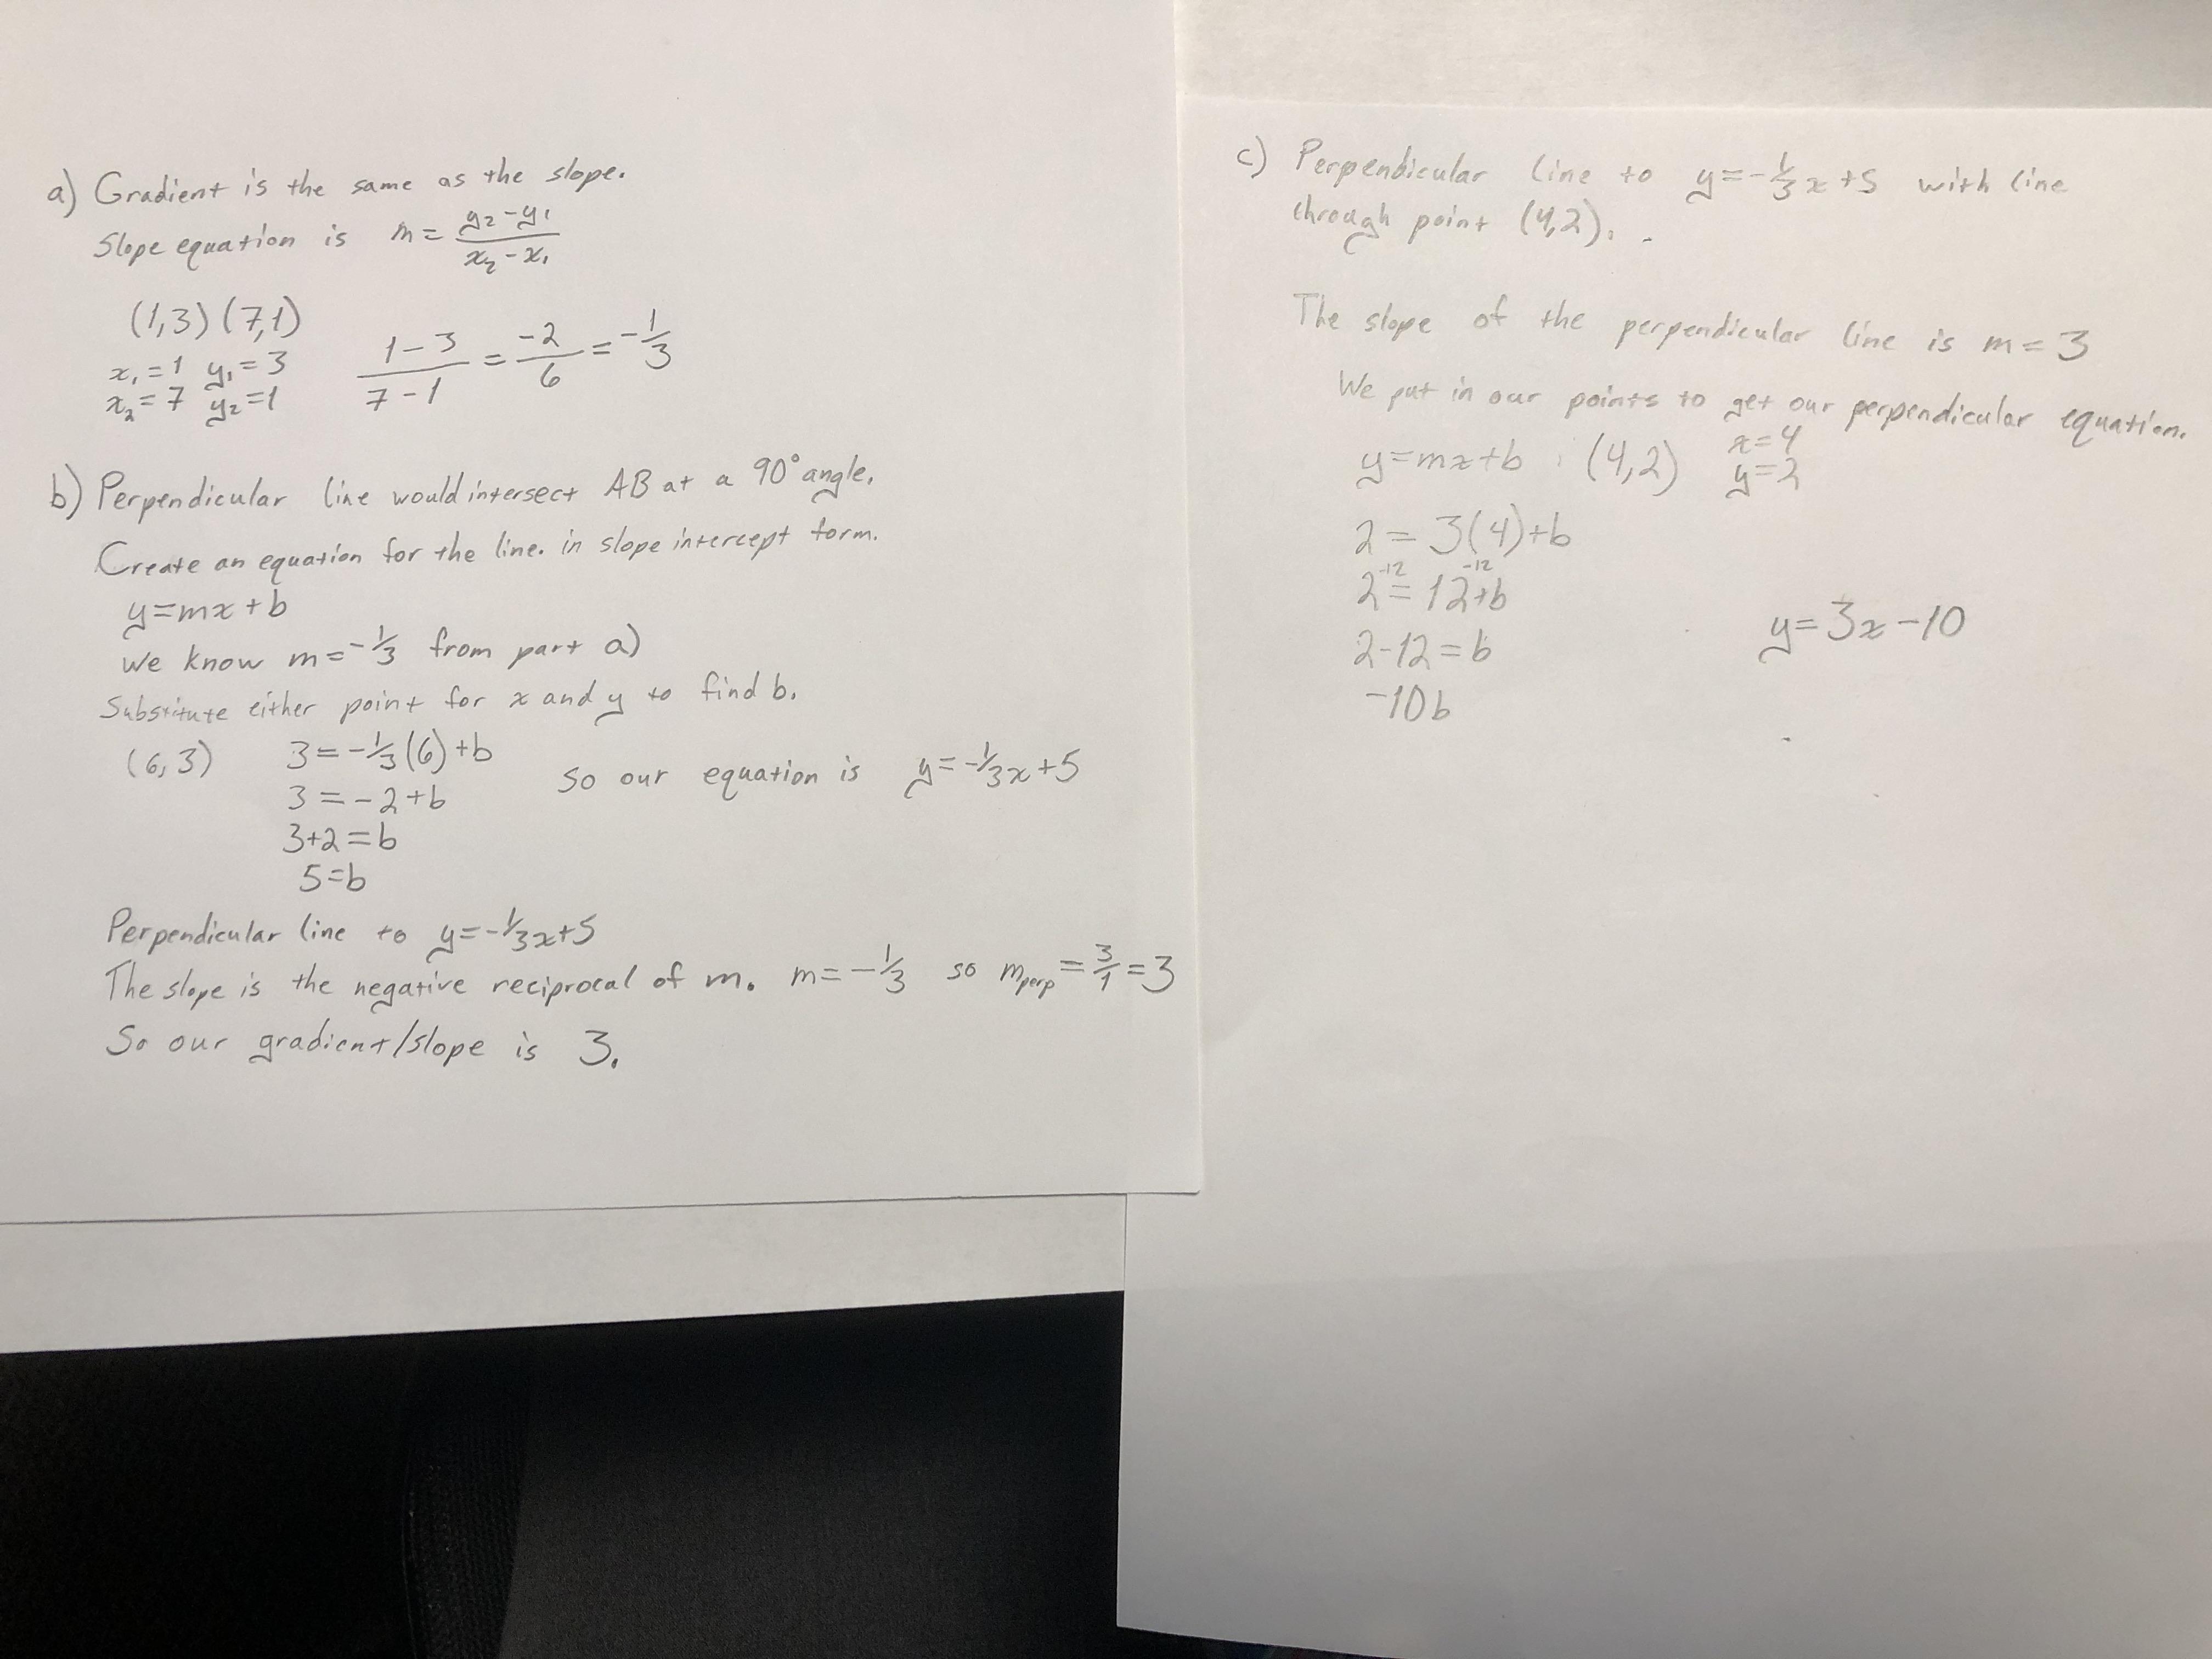 a) Gradient is the same as the slope.
Slope equation is m = y₂-y₁/x₂-x₁
(1,3) (7,1)
x₁=1 y₁=3
x₂=7 y₂=1
1-3/7-1 = -2/6 = -1/3
b) Perpendicular line would intersect AB at a 90° angle.
Create an equation for the line. in slope intercept form.
y=mx+b
We know m=-1/3 from part a)
Substitute either point for x and y to find b.
(6,3) 3=-1/3(6)+b
3=-2+b
3+2=b
5=b
So our equation is y=-1/3x+5
Perpendicular line to y=-1/3x+5
The slope is the negative reciprocal of m. m=-1/3 so m_perp=3/1=3
So our gradient/slope is 3.
c) Perpendicular line to y=-1/3x+5 with line
through point (4,2).
The slope of the perpendicular line is m=3
We put in our points to get our perpendicular equation.
y=mx+b (4,2) x=4
y=2
2=3(4)+b
-12 -12
2=12+b
2-12=b
-10b
y=3x-10